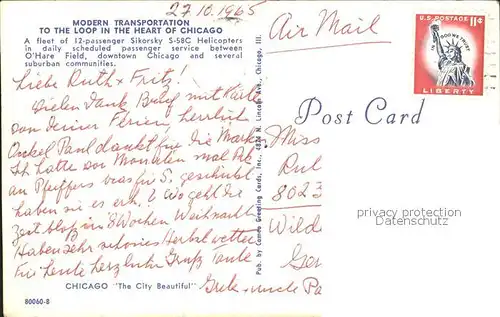 27.10.1965
MODERN TRANSPORTATION
TO THE LOOP IN THE HEART OF CHICAGO
A fleet of 12-passenger Sikorsky S-58C Helicopters
in daily scheduled passenger service between
O'Hare Field, downtown Chicago and several
suburban communities.
Liebe Ruth + Fritz!
Vielen Dank Brief mit Karte
von Deinen Ferien herrlich
Onckel Paul dankt für die Mark
Ich hatte vor Monaten mal
an Pfeiffers was für S. geschickt
haben sie es erh.? Wo geht die
Zeit bloß in 8 Wochen Weihnacht
Haben sehr schönes Herbstwetter
Für heute herzliche Grüße Tante
Grete + uncle Pa
CHICAGO "The City Beautiful"
80060-8
Pub. by Cameo Greeting Cards, Inc., 4824 N. Lincoln Ave., Chicago, Ill.
Air Mail
U.S. POSTAGE 11¢
IN GOD WE TRUST
LIBERTY
Post Card
Miss
8023
privacy protection
AnsichtskartenCenter